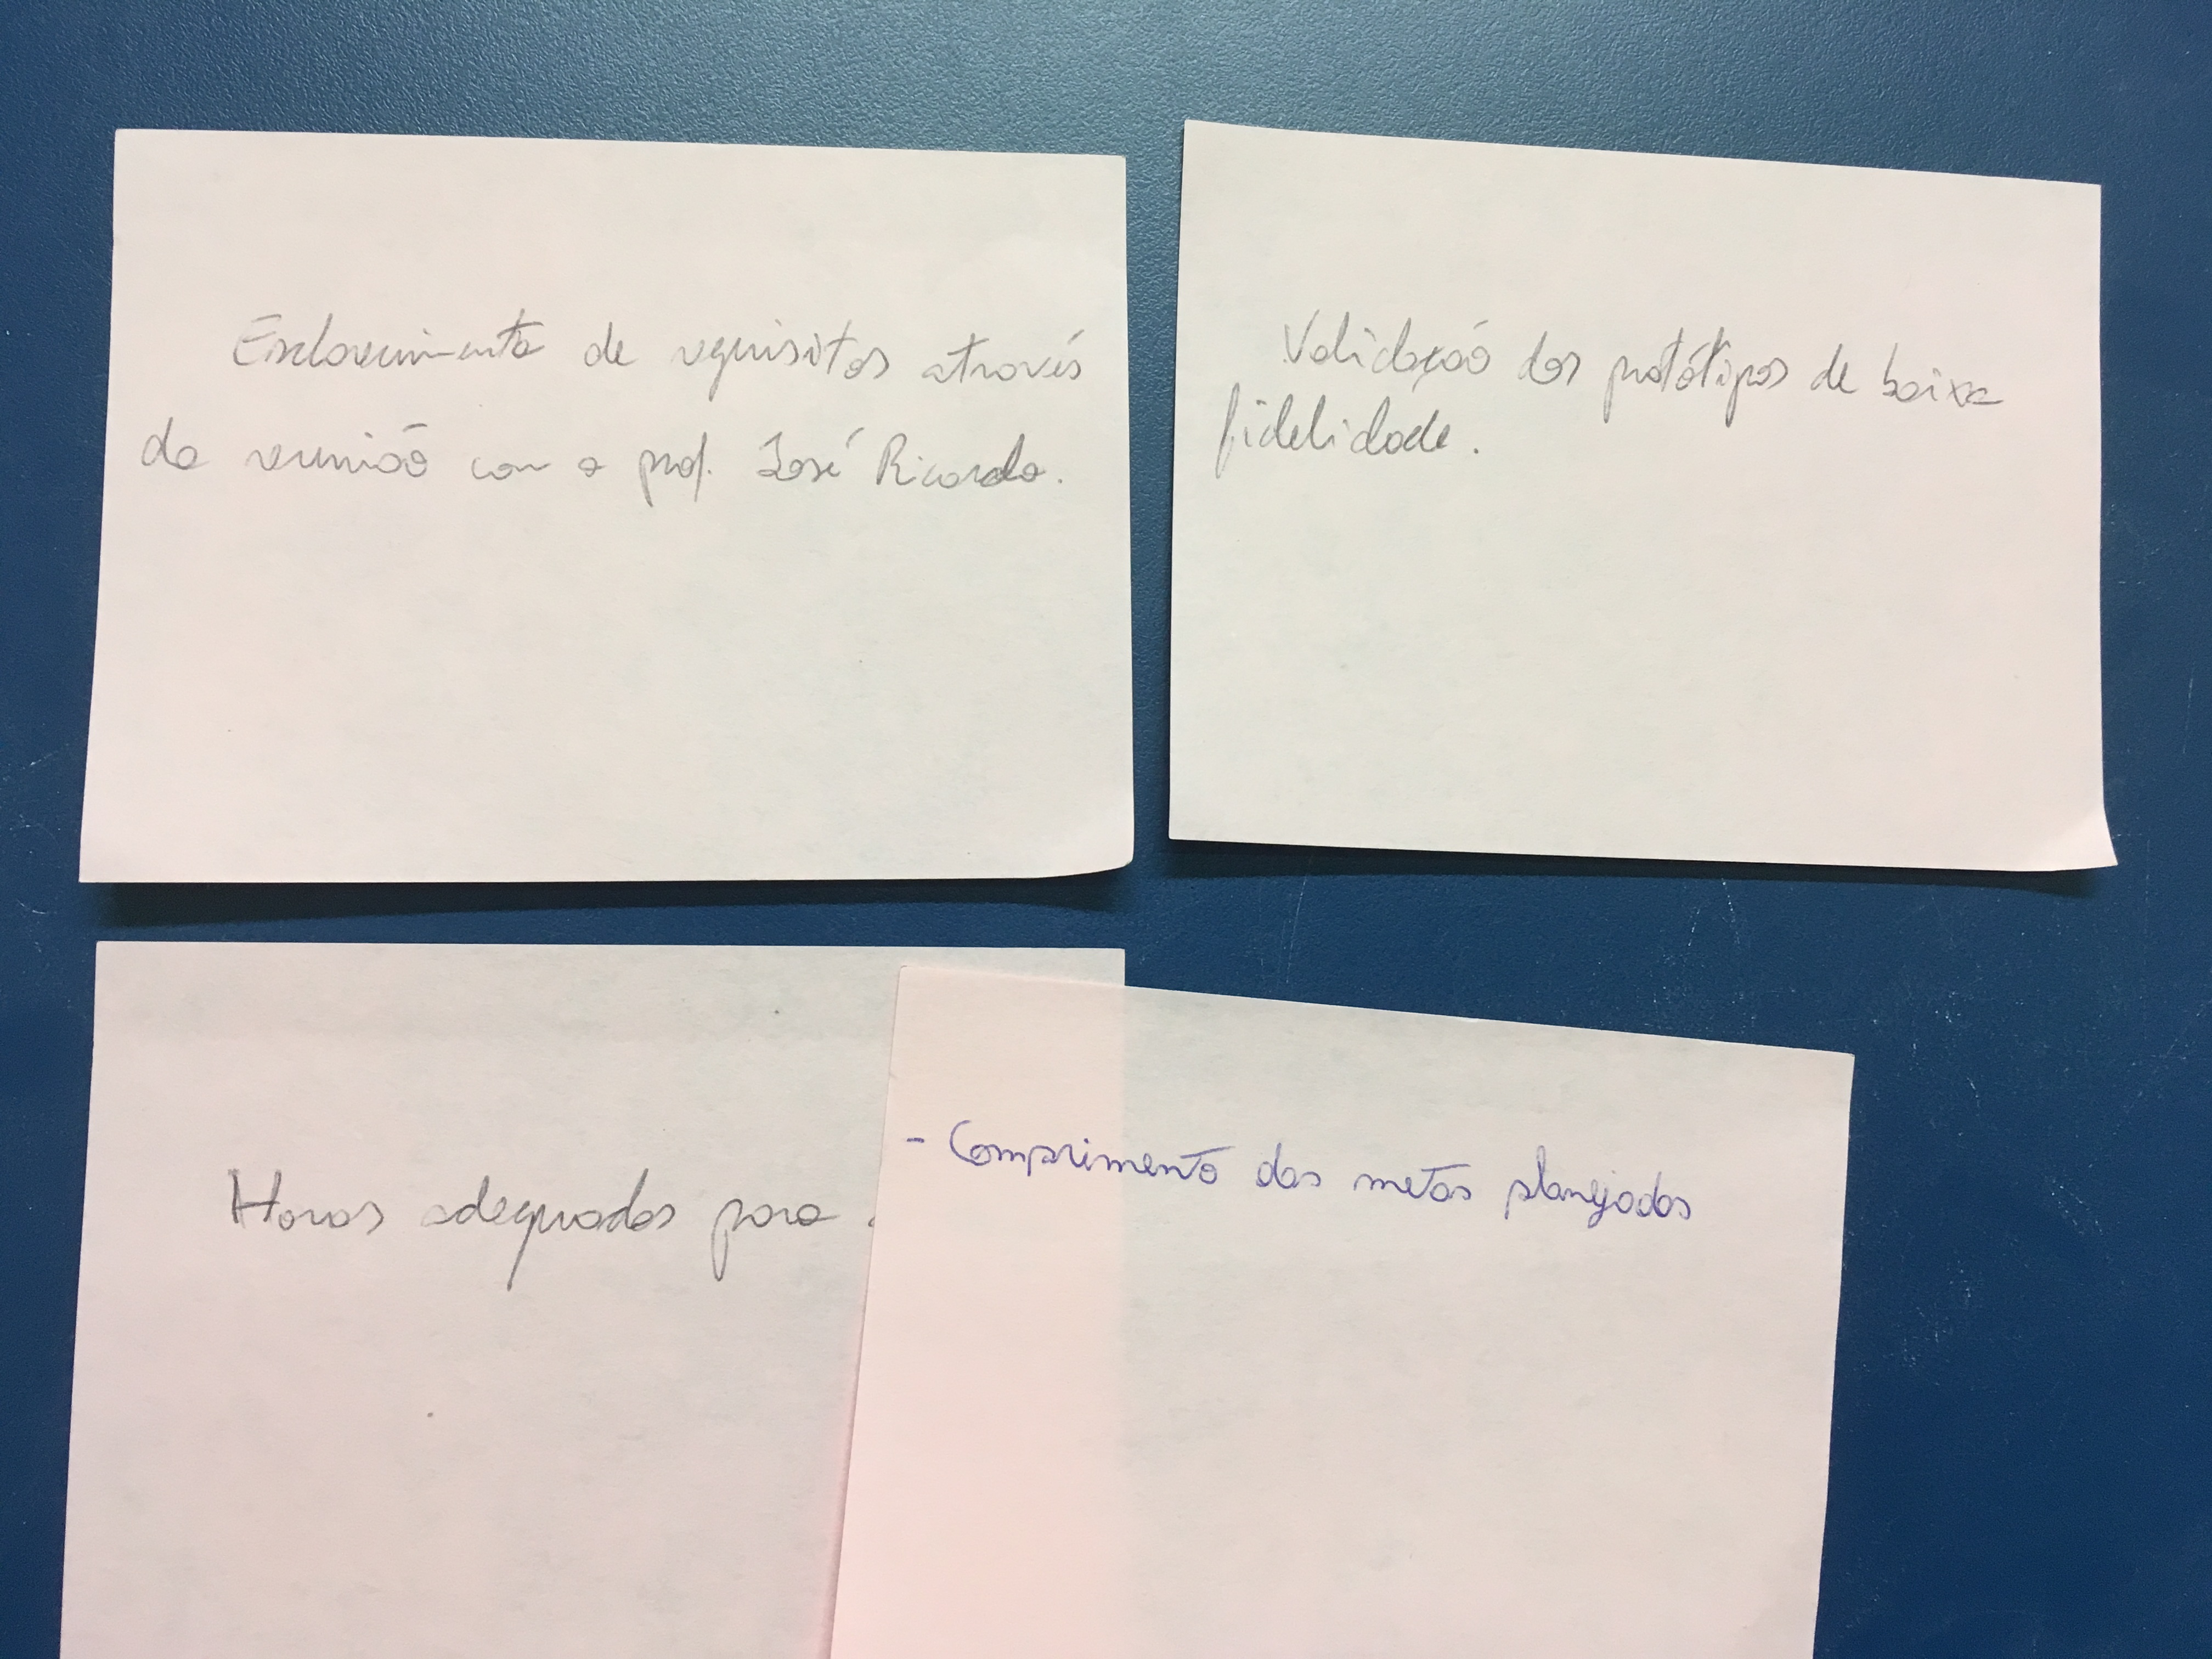 Esclarecimento de requisitos através
da reunião com o prof. José Ricardo.
Validação dos protótipos de baixa
fidelidade.
Horas adequadas para
- Comprimento das metas planejadas